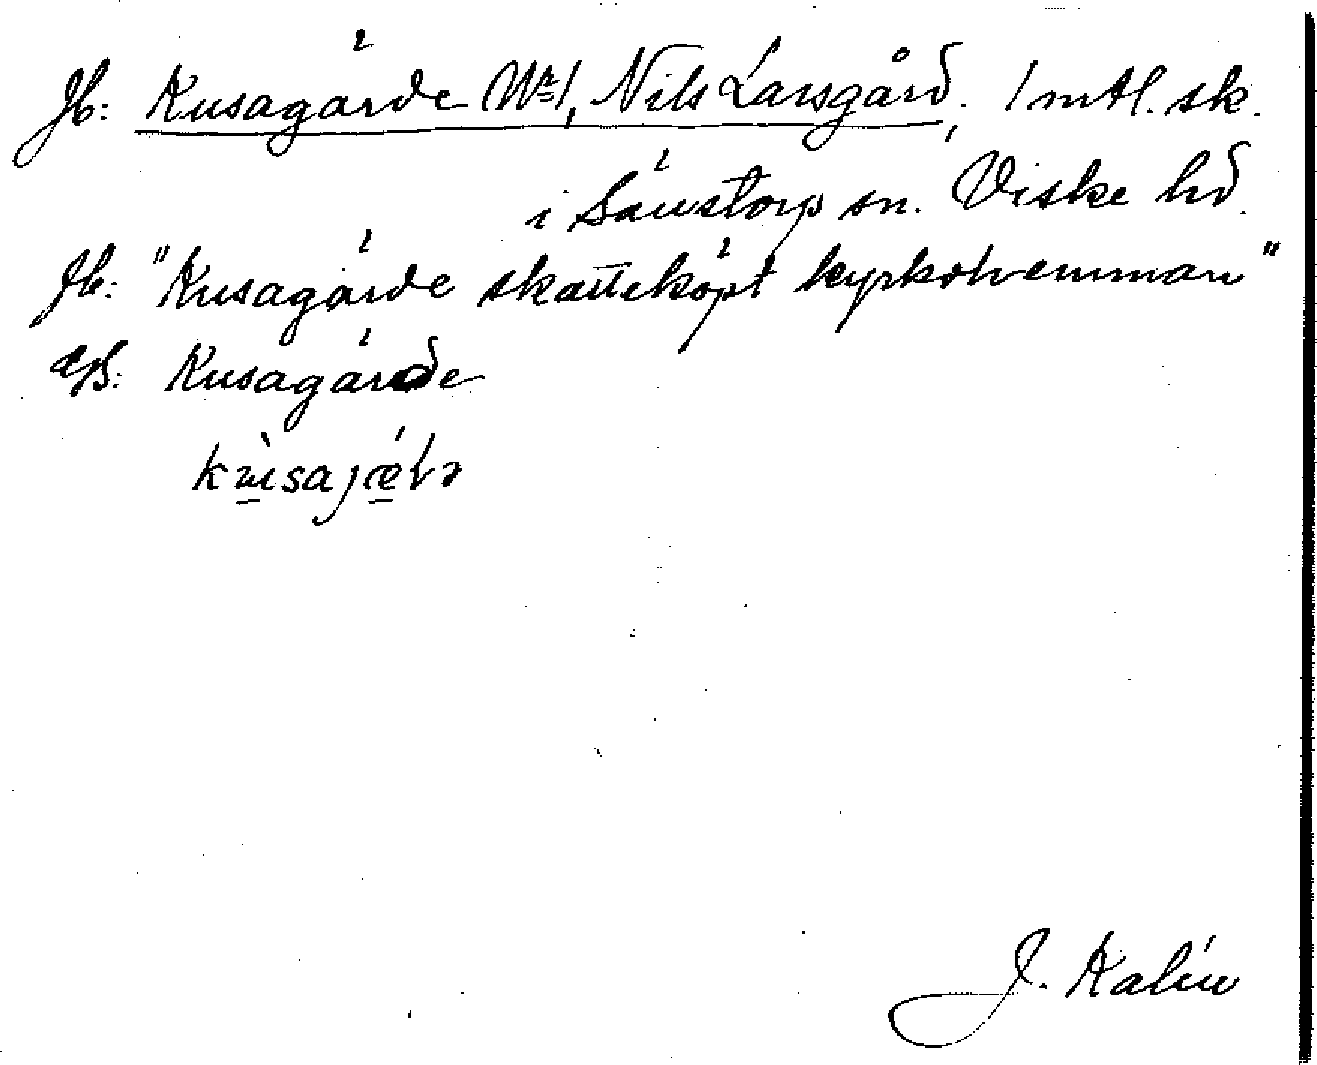 Jb: Kusagärde Nr 1, Nils Larsgård, 1 mtl. sk.
i Sällstorp sn. Viske hd.
Jb: "Kusagärde skatteköpt kyrkohemman"
Kusagärde
J. Kalén